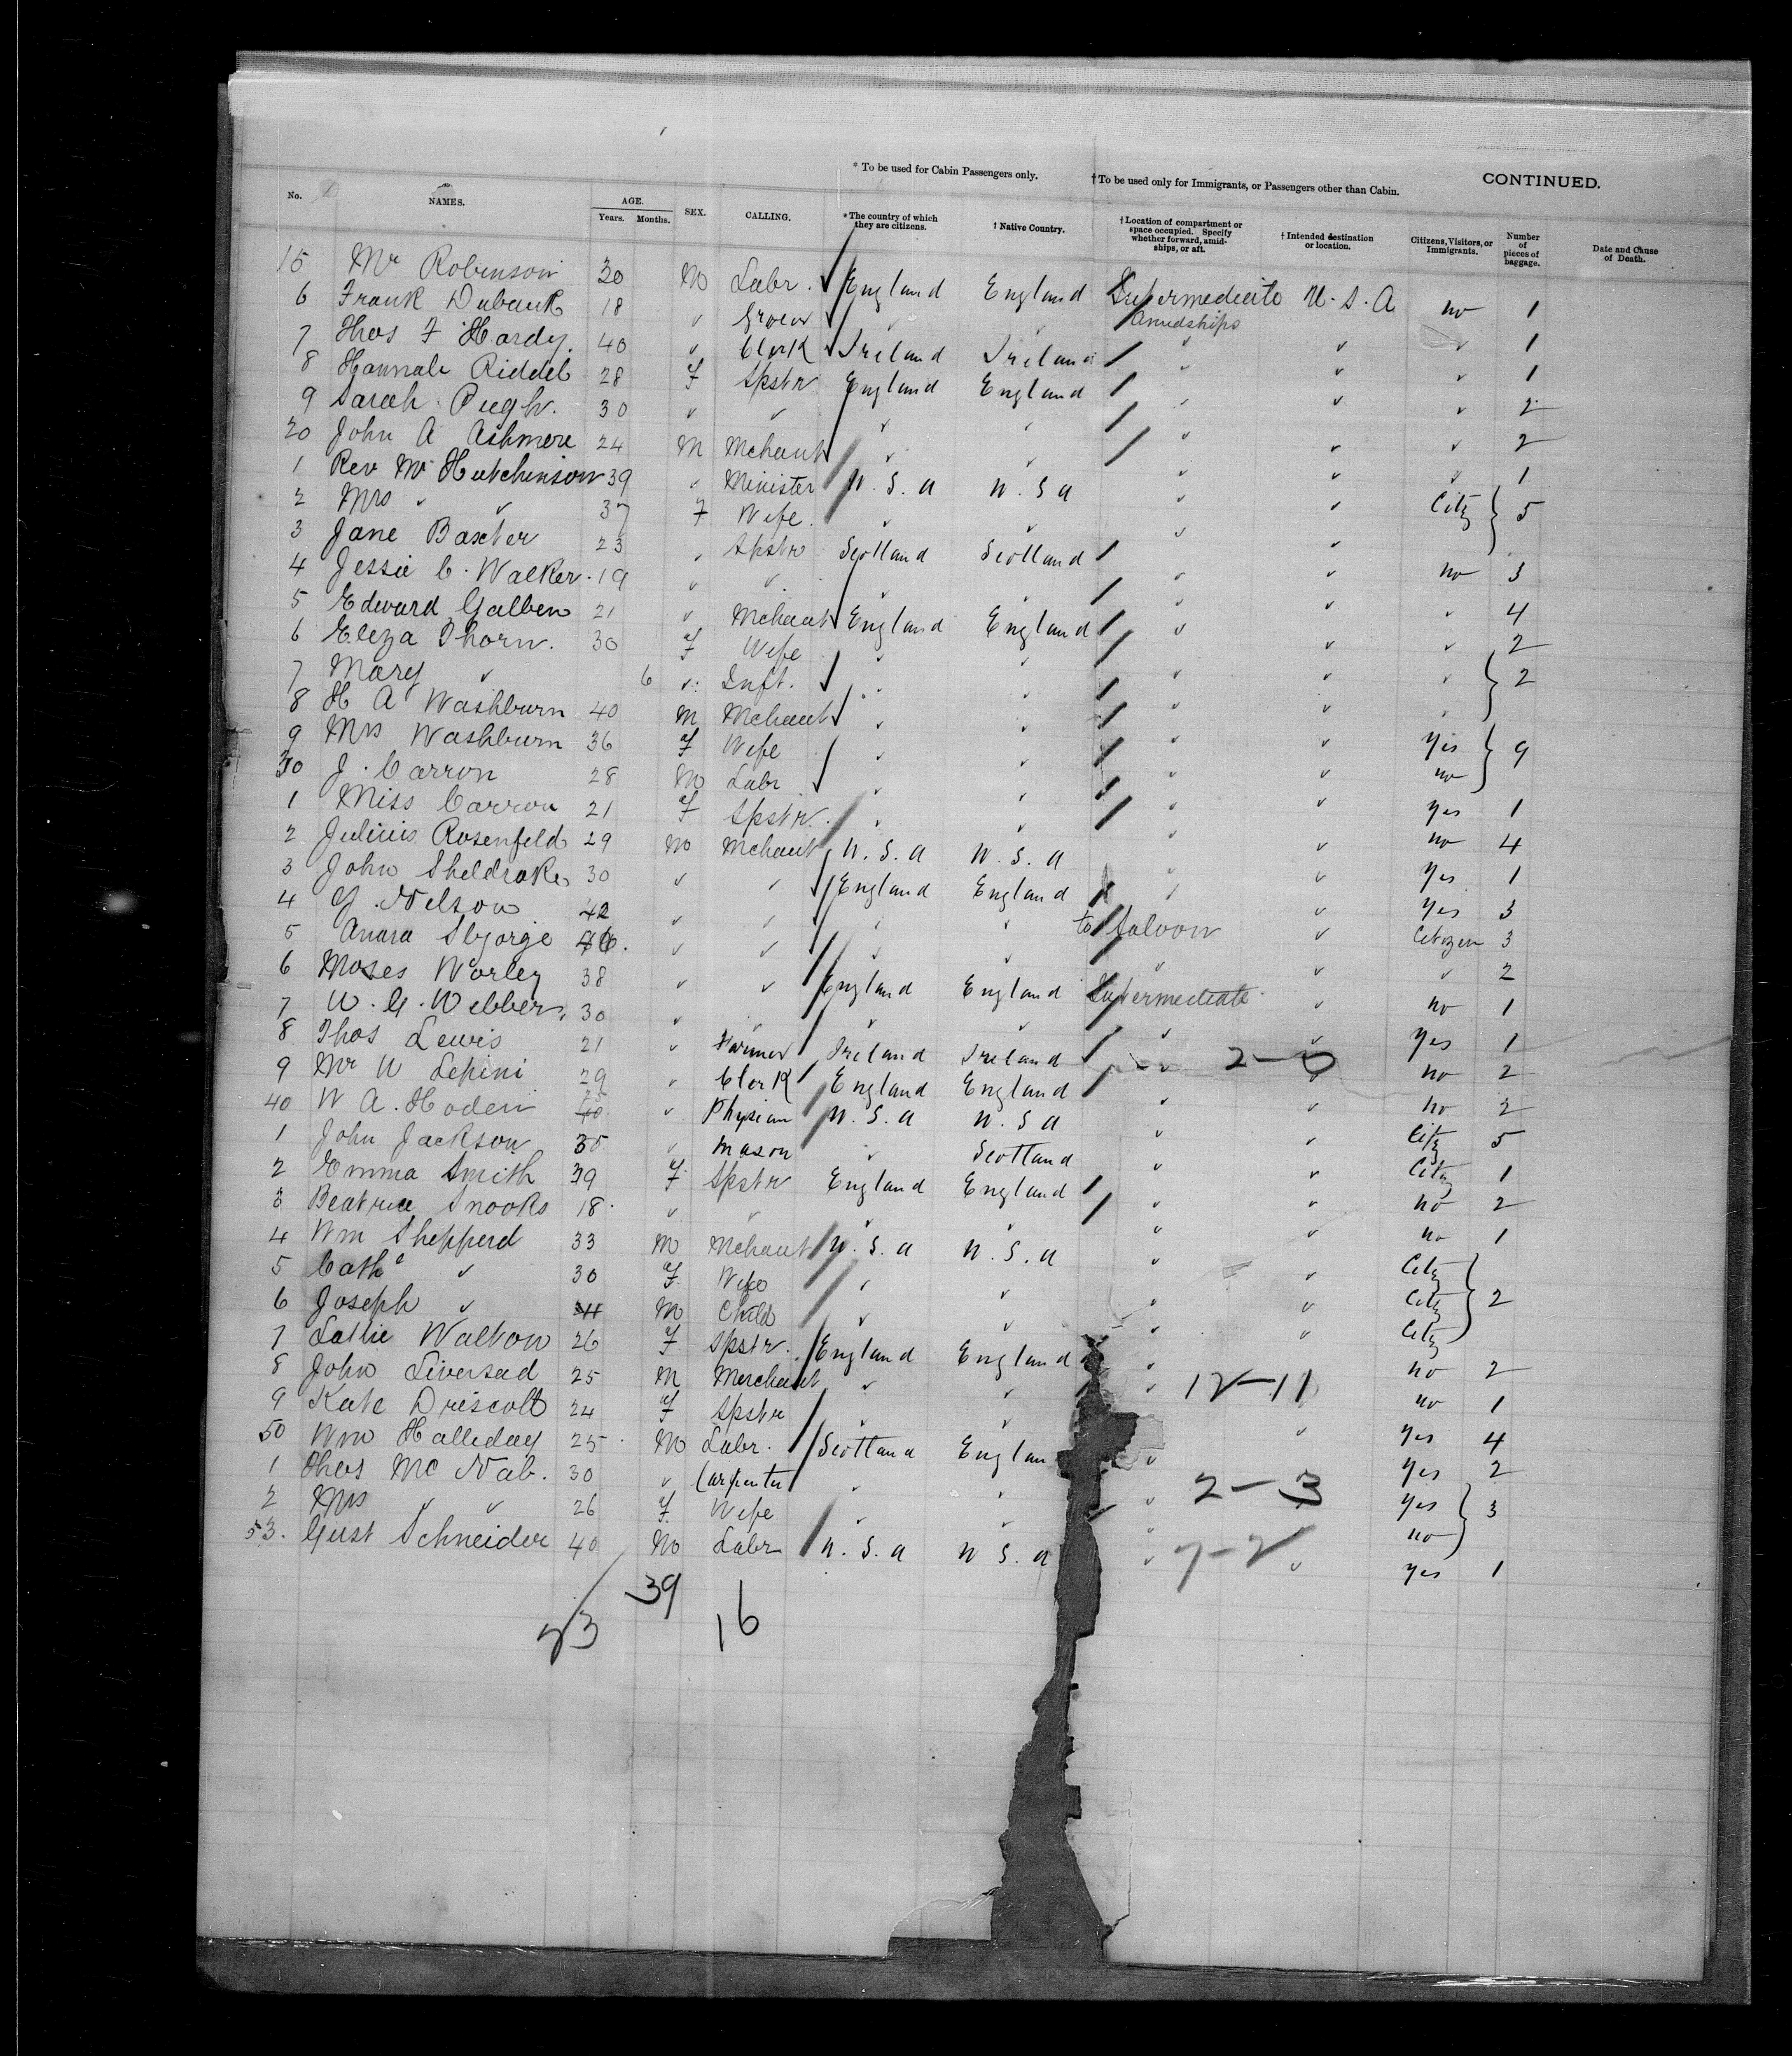 * To be used for Cabin Passengers only. † To be used only for Immigrants, or Passengers other than Cabin. CONTINUED.
No. NAMES. AGE. Years. Months. SEX. CALLING. * The country of which they are citizens. † Native Country. † Location of compartment or space occupied. Specify whether forward, amidships, or aft. † Intended destination or location. Citizens, Visitors, or Immigrants. Number of pieces of baggage. Date and Cause of Death.
15 Mr Robinson 30 M Labr. England England Intermediate U.S.A no 1
Amidships
6 Frank Dubank 18 " Grocer " " " " " 1
7 Thos F Hardy. 40 " Clerk Ireland Ireland " " " 1
8 Hannah Riddel 28 F Spstr England England " " " 2
9 Sarah Pugh. 30 " " " " " " " 2
20 John A Ashmore 24 M Mchant " " " " " 1
1 Rev Mr Hutchinson 39 " Minister U.S.A U.S.A " " City 5
2 Mrs " " 37 F Wife. " " " "
3 Jane Baxter 23 " Spstr Scotland Scotland " " no 3
4 Jessie C. Walker. 19 " " " " " " " 4
5 Edward Galben 21 " Mchant England England " " " 2
6 Eliza Thorn. 30 F Wife " " " " " 2
7 Mary " 6 " Inft. " " " " "
8 H A Washburn 40 M Mchant " " " " Yes 9
9 Mrs Washburn 36 F Wife " " " " no
30 J. Carron 28 M Labr " " " " Yes 1
1 Miss Carron 21 F Spstr. " " " " no 4
2 Julius Rosenfeld 29 M Mchant U.S.A U.S.A " " Yes 1
3 John Sheldrake 30 " " England England " " Yes 3
4 Nelson 42 " " " " to Saloon " Citizen 3
5 46. " " " " " " " 2
6 Moses Worley 38 " " England England Intermediate " no 1
7 W. G. Webber. 30 " " " " " " Yes 1
8 Thos Lewis 21 " Farmer Ireland Ireland " 2-0 no 2
9 Mr W Lepini 29 " Clerk England England " " no 2
40 W A. Hoden " Physian U.S.A U.S.A " " City 5
1 John Jackson 35 " Mason " Scotland " " City 1
2 Emma Smith 39 F Spstr England England " " no 2
3 Beatrice Snooks 18 " " " " " " no 1
4 Wm Shepperd 33 M Mchant U.S.A U.S.A " " City 2
5 Cathe " 30 F Wife " " " " City
6 Joseph " M Child " " " " City
7 Lottie Walton 26 F Spstr. England England " no 2
8 John Liversad 25 M Merchant " " " 12-11 no 1
9 Kate Driscoll 24 F Spstr " " " Yes 4
50 Wm Halliday 25 M Labr. Scotland Englan " Yes 2
1 Thos Mc Nab. 30 " Carpenter " " " 2-3 Yes 3
2 Mrs " " 26 F Wife " " " no
53. Gust Schneider 40 M Labr U.S.A U.S.A " 7-2 " Yes 1
39
23 16